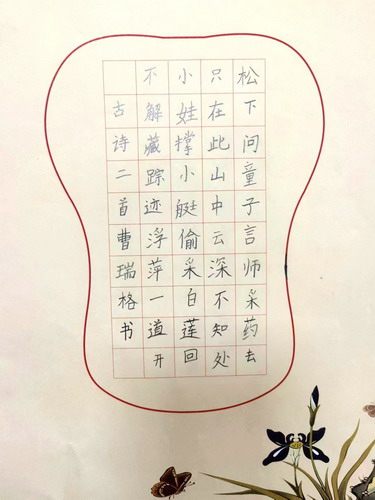 松下问童子言师采药去
只在此山中云深不知处
小娃撑小艇偷采白莲回
不解藏踪迹浮萍一道开
古诗二首曹瑞格书